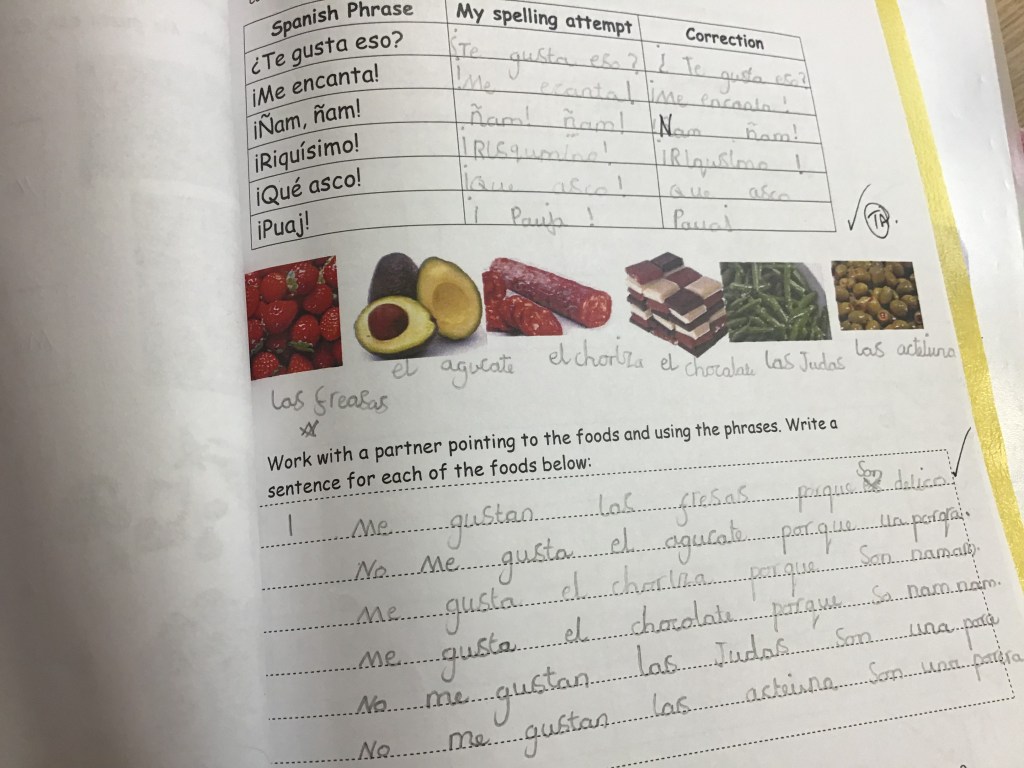 Spanish Phrase My spelling attempt Correction
¿Te gusta eso? ¿Te gusta eso? ¿Te gusta eso?
¡Me encanta! ¡Me ecanta! ¡Me encanta!
¡Ñam, ñam! ñam! ñam! Ñam ñam!
¡Riquísimo! ¡RISqumino! ¡RIqusimo!
¡Qué asco! ¡que asco! que asco
¡Puaj! ¡Pauja! Pauaj
TA.
el agucate el choriza el chocalate las Judas las acteiuna
las freasas
Work with a partner pointing to the foods and using the phrases. Write a
sentence for each of the foods below:
Son
1 Me gustan las fresas porque delico
No Me gusta el agucate porque un
Me gusta el choriza porque Son namam.
Me gusta el chocolate porque So nam nam.
No me gustan las Judas Son una
No me gustan las acteiuna Son una